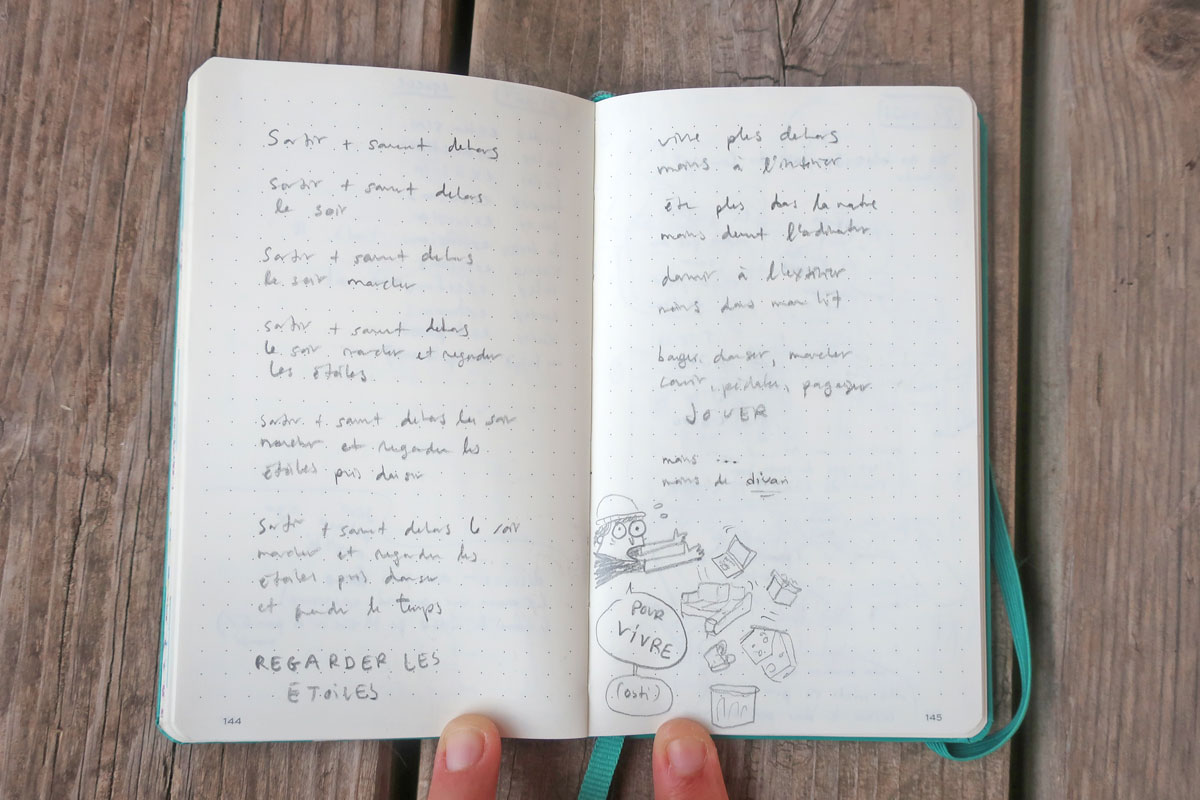 Sortir + souvent dehors
Sortir + souvent dehors
le soir
Sortir + souvent dehors
le soir marcher
sortir + souvent dehors
le soir marcher et regarder
les étoiles
sortir + souvent dehors le soir
marcher et regarder les
étoiles puis danser
Sortir + souvent dehors le soir
marcher et regarder les
étoiles puis danser
et prendre le temps
REGARDER LES
ÉTOILES
144
vivre plus dehors
moins à l'intérieur
être plus dans la nature
moins devant l'ordinateur
dormir à l'extérieur
moins dans mon lit
bouger, danser, marcher
courir, pédaler, pagayer
JOUER
moins ...
moins de divan
POUR
VIVRE
(osti)
145